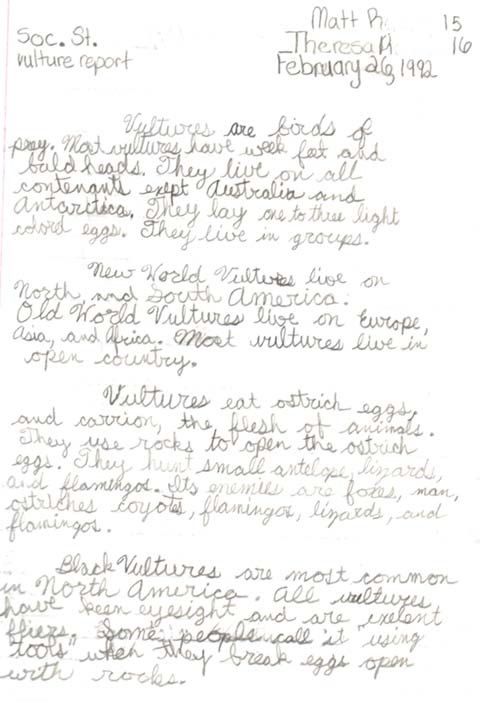 Matt R. 15
Soc. St. Theresa H. 16
vulture report February 26, 1992
Vultures are birds of
prey. Most vultures have week feet and
bald heads. They live on all
contenants exept Australia and
Antarctica. They lay one to three light
colord eggs. They live in groups.
New World Vultures live on
North, and South America.
Old World Vultures live on Europe,
Asia, and Africa. Most vultures live in
open country.
Vultures eat ostrich eggs,
and carrion, the flesh of animals.
They use rocks to open the ostrich
eggs. They hunt small antelope, lizards,
and flamingos. Its enemies are foxes, man,
ostriches coyots, flamingos, lizards, and
flamingos.
Black Vultures are most common
in North America. All vultures
have keen eyesight and are exelent
fliers. Some people call it "using
tools" when they break eggs open
with rocks.